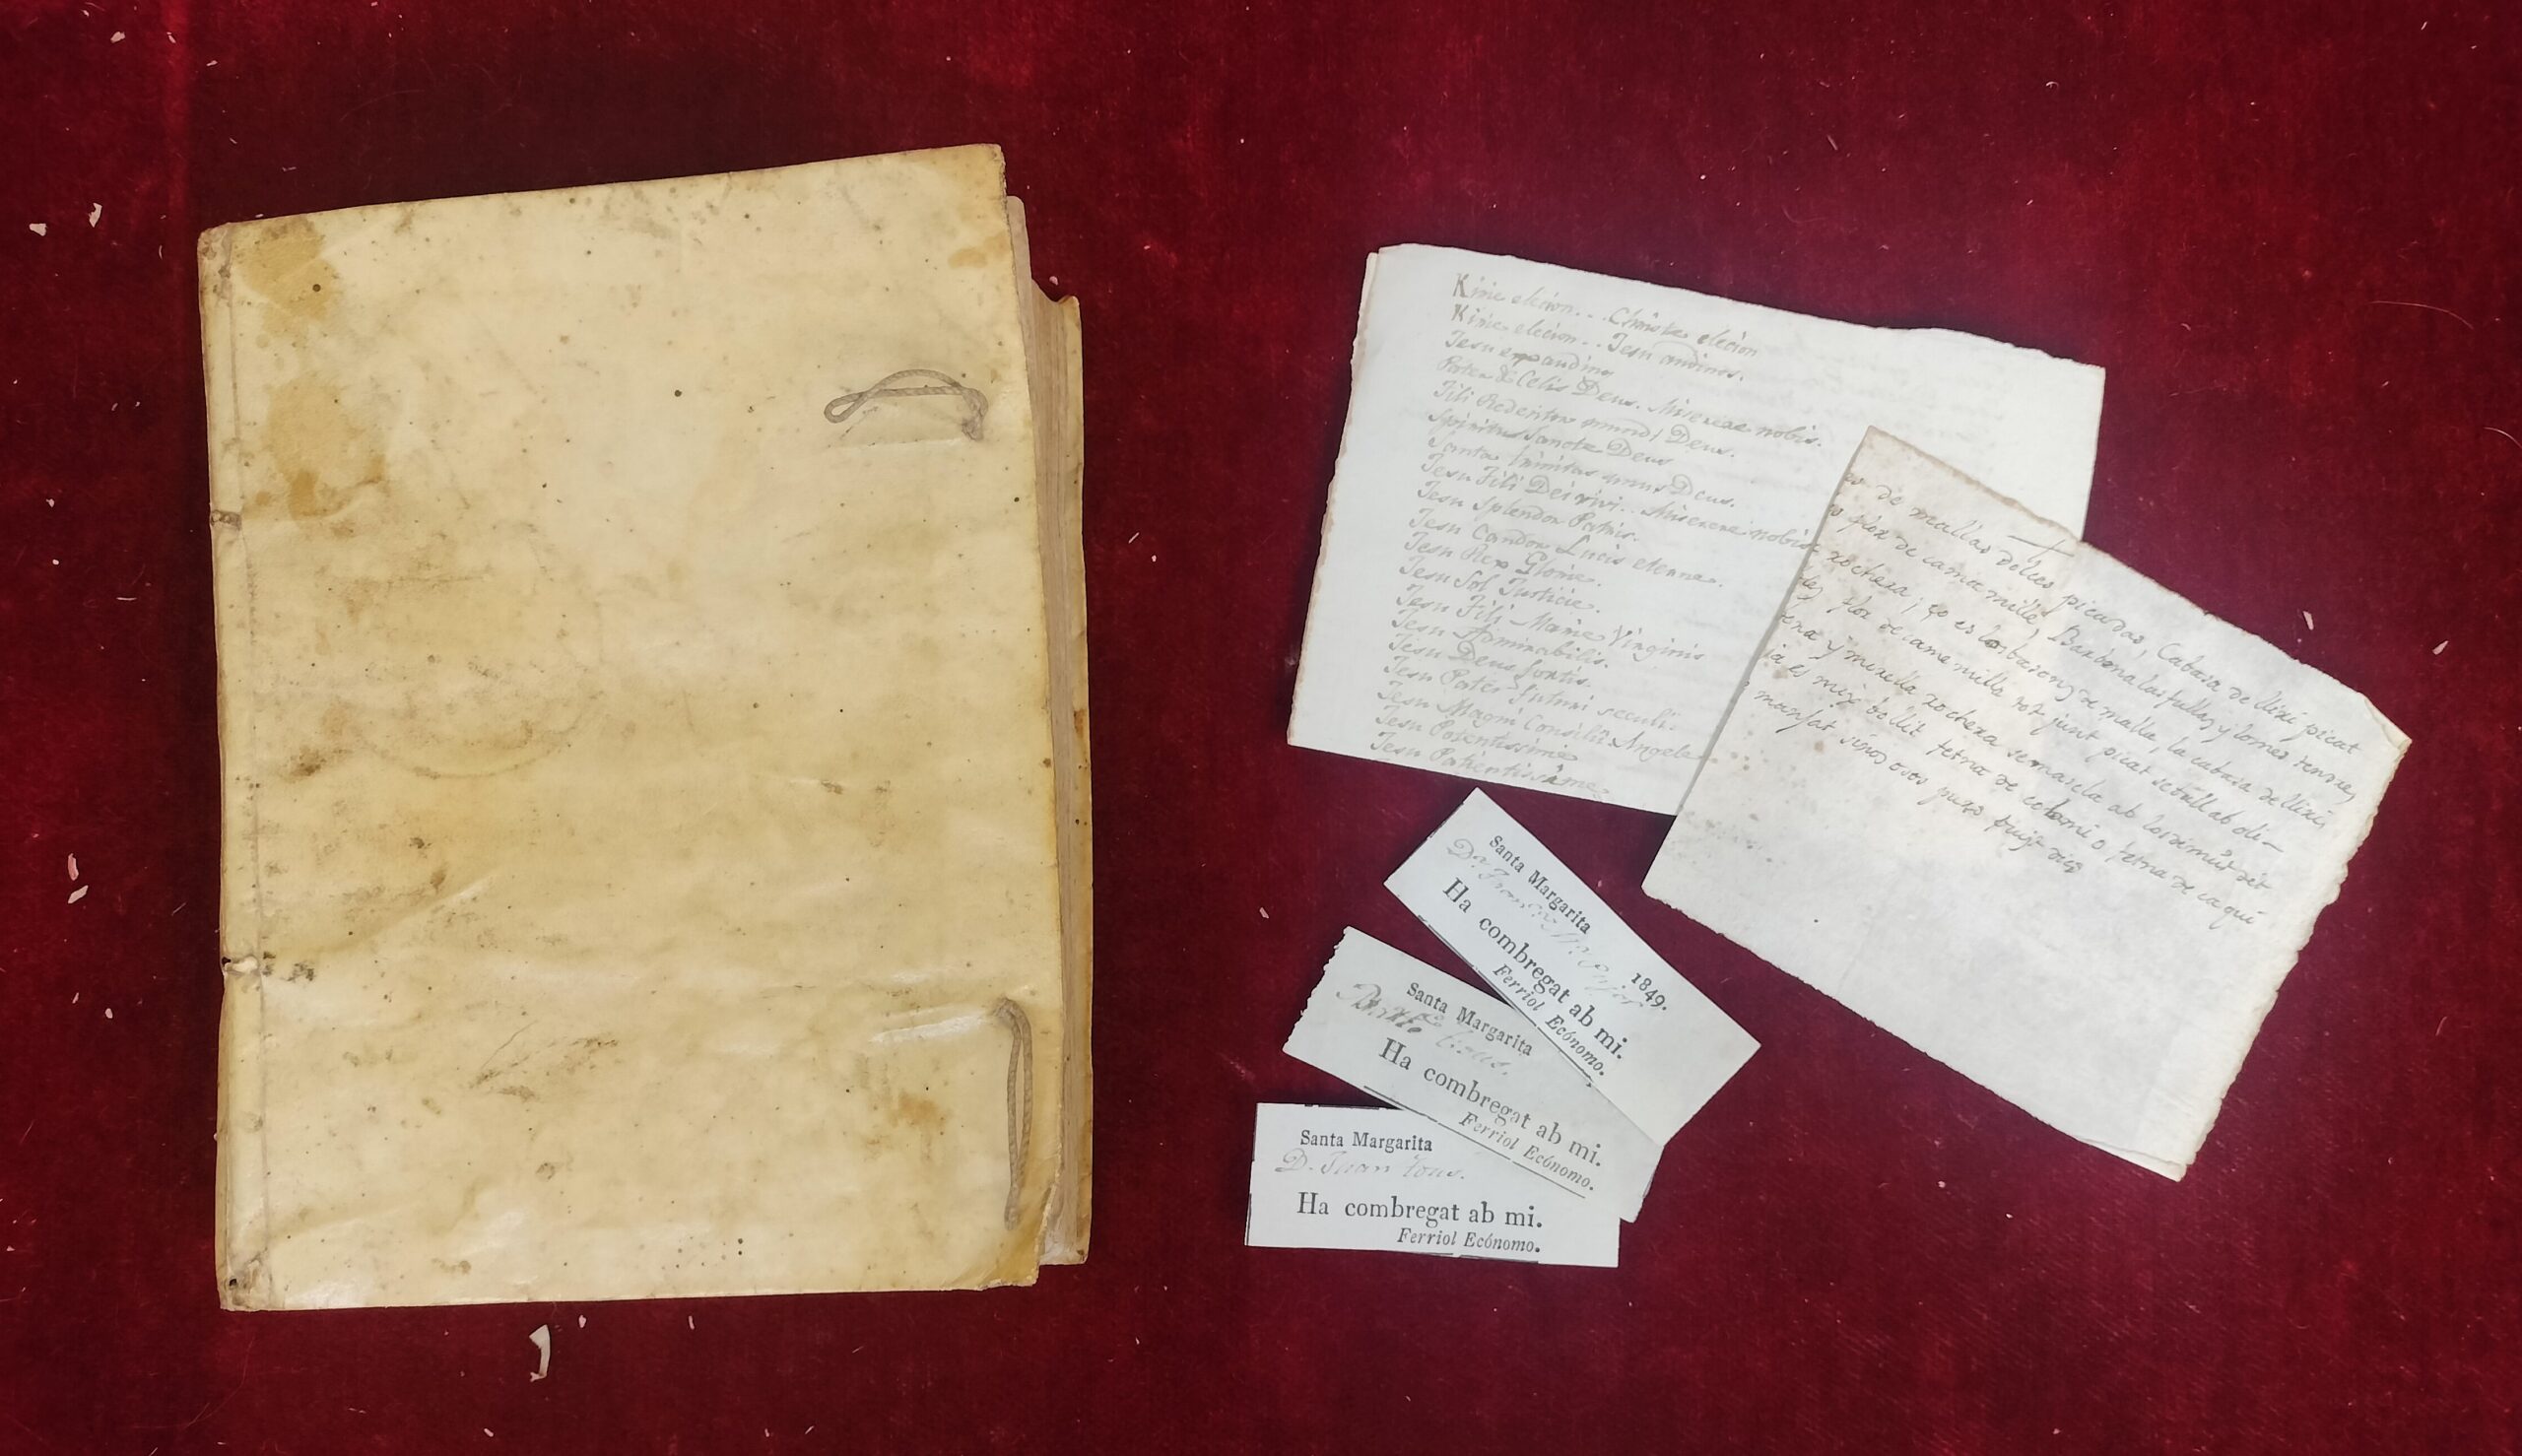 Kirie eleison... Christe eleison
Kirie eleison.. Jesu audinos.
Jesu exaudino
Pater de Celis Deus. Miserere nobis.
Fili Redentor mundi Deus.
Spiritus Sancte Deus
Santa trinitas unus Deus.
Jesu Fili Dei vivi.. Miserere nobis
Jesu Splendor Patris.
Jesu Candor Lucis eterne.
Jesu Rex Glorie.
Jesu Sol Justicie.
Jesu Fili Marie Virginis
Jesu Admirabilis.
Jesu Deus fortis.
Jesu Pater futuri seculi.
Jesu Magni Consilii Angele
Jesu Potentissime
Jesu Patientissime
de mallas dolces picadas, Cabasa de lliri picat
flor de camamilla, Bardana las fullas y lomes tendres
rochera; ço es las basons de malla, la cabasa de lliri,
flor de camamilla tot junt picat se bull ab oli-
y murella rochera se mascla ab los demut dét
es mix bullit fetna de colomi o fetna de ca qui
manjat sinos osos puga
Santa Margarita 1849.
Ha combregat ab mi.
Ferriol Ecónomo.
Santa Margarita
Ha combregat ab mi.
Ferriol Ecónomo.
Santa Margarita
D. Juan Tous.
Ha combregat ab mi.
Ferriol Ecónomo.